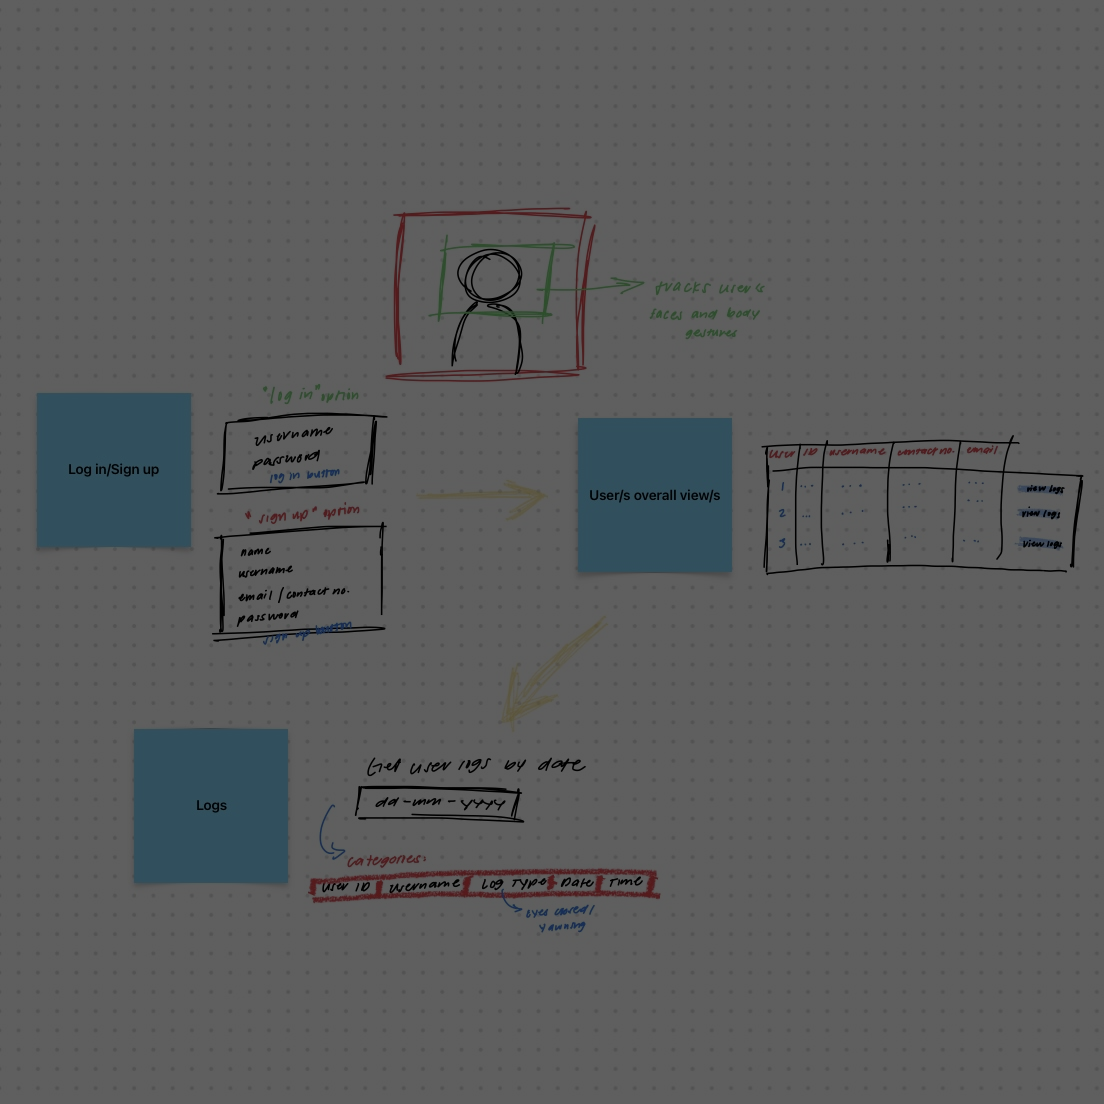 tracks user/s
faces and body
gestures
"log in" option
Log in/Sign up
username
password
log in button
"sign up" option
name
username
email / contact no.
password
sign up button
User/s overall view/s
User ID username contact no. email
1 ... ... ... ... view logs
2 ... ... ... ... view logs
3 ... ... ... ... view logs
Logs
Get user logs by date
dd-mm-yyyy
categories:
User ID Username Log Type Date Time
eyes closed/
yawning